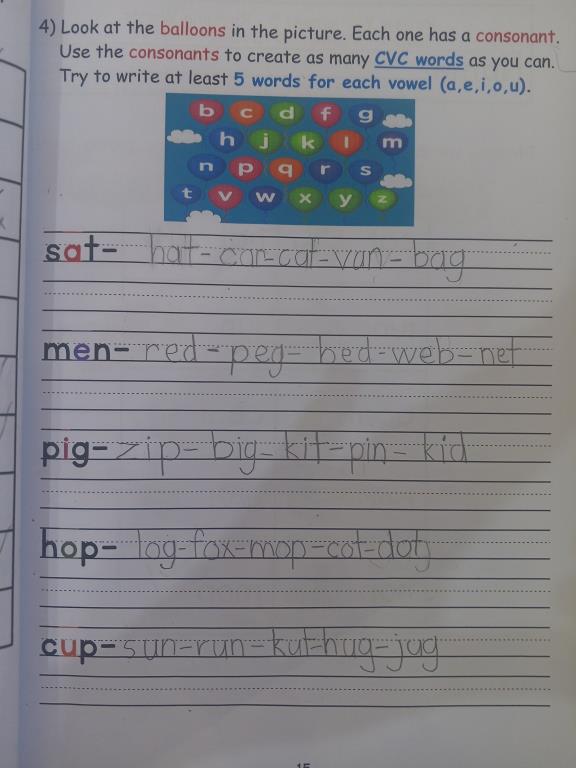 4) Look at the balloons in the picture. Each one has a consonant.
Use the consonants to create as many CVC words as you can.
Try to write at least 5 words for each vowel (a,e,i,o,u).
b c d f g
h j k l m
n p q r s
t v w x y z
sat- hat-car-cat-van-bag
men- red-peg-bed-web-net
pig- zip-big-kit-pin-kid
hop- log-fox-mop-cot-dot
cup- sun-run-kut-hug-jug
15